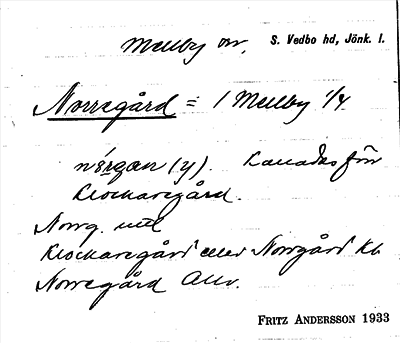 Mellby sn, S. Vedbo hd, Jönk. l.
Norregård = 1 Mellby 1/4
nórgan (y). Kallades förr
Klockaregård.
Norrg. med
Klockaregård eller Norrgård Kb
Norregård Allv.
FRITZ ANDERSSON 1933